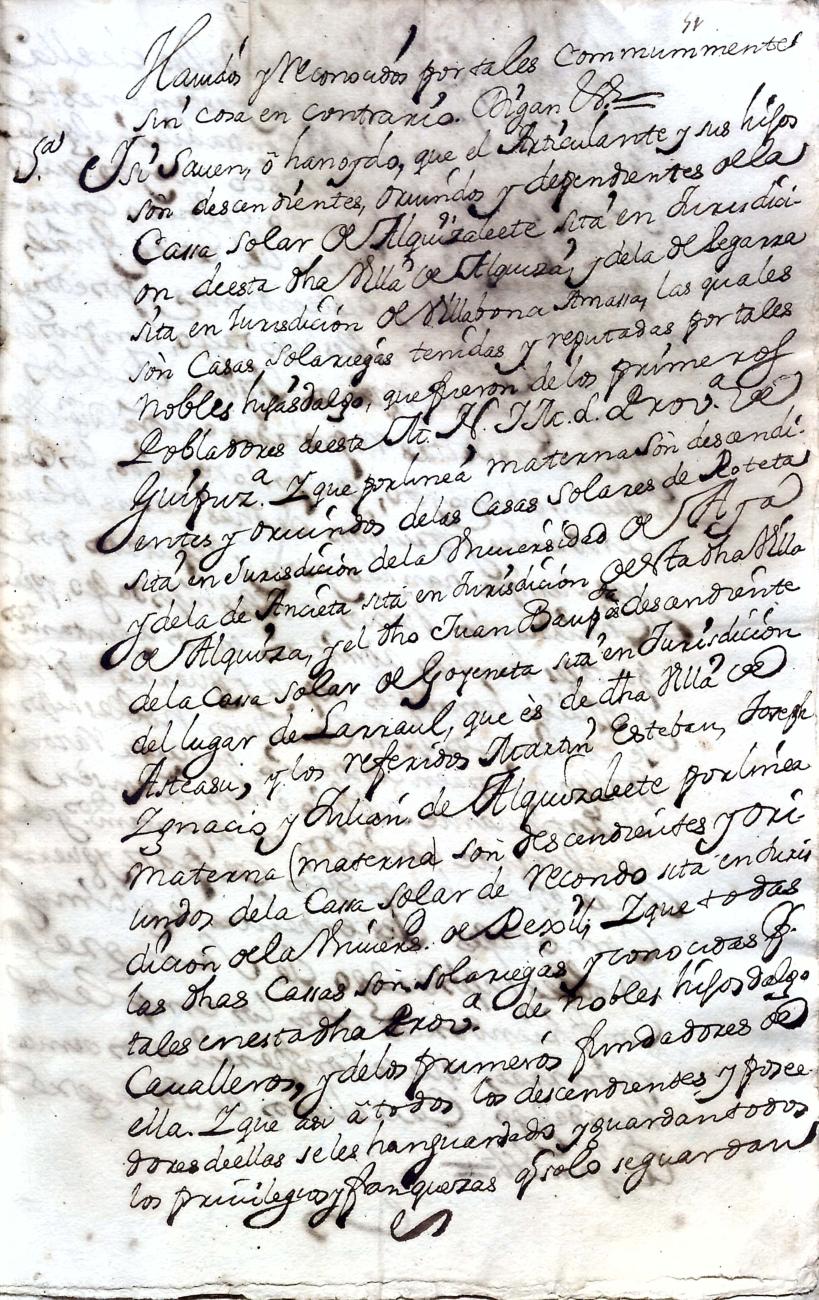 Hauidos y Reconocidos por tales Commummente
sin cosa en contrario. Digan &a =
5.a Y si Sauen, ô han oydo, que el Articulante y sus hijos
son descendientes, oriundos y dependientes de la
Cassa Solar de Alquizaleete sita en Jurisdici-
on de esta dha Villa de Alquiza, y de la de Legarra
sita en Jurisdicion de Villabona Amassa, las quales
son Casas Solariegas tenidas y reputadas por tales
nobles hijosdalgo, que fueron de los primeros
Pobladores de esta M. N. Y M. L. Prov.a de
Guipuz.a Y que por linea materna son descendi-
entes y oriundos de las Casas Solares de Roteta
sita en Jurisdicion de la Vniversidad de Aya
y de la de Ancieta sita en Jurisdicion de esta dha Villa
de Alquiza, y el dho Juan Baup.ta es descendiente
de la Cassa Solar de Goyeneta sita en Jurisdicion
del lugar de Larraul, que ès de dha Villa de
Asteasu, y los referidos Martin Esteban, Joseph
Ygnacio y Julian de Alquizaleete por linea
materna (materna) son descendientes y ori-
undos de la Cassa Solar de recondo sita en Juris
dicion de la Vnivers. de Rexil; Y que todas
las dhas Cassas son Solariegas y conocidas p.
tales en esta dha Prov.a de nobles hijosdalgo
Caualleros, y de los primeros fundadores de
ella. Y que asi â todos los descendientes y posee-
dores de ellas se les han guardado y guardan todos
los priuilegios y franquezas q solo se guardan